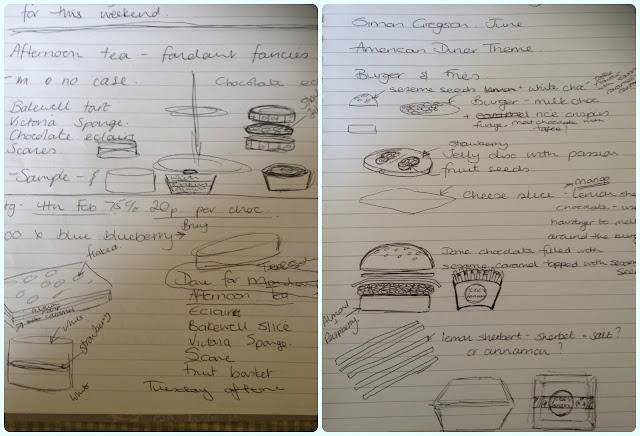 for this weekend.
Afternoon tea - fondant fancies
- no case.
Chocolate ec
Bakewell tart
Victoria Sponge.
Chocolate eclairs
Scones
- Sample - £
4th Feb 75% 20p per choc.
00 x blue blueberry →
flaked.
Afternoon tea
Eclaire
Bakewell slice
Victoria Sponge.
Scone
Fruit basket
Tuesday
white
strawberry
white
Simon Gregson. June
American Diner Theme.
Burger & Fries
sesame seeds + white choc
Burger - milk choc
+ caramel rice crispies
fudge, melt chocolate with
strawberry
Jelly disc with passion
fruit seeds.
mango
Cheese slice - lemon she
chocolate - use
hairdryer to mel
around the bur
Dome chocolate filled with
sesame caramel topped with sesam
seed
Almond
Raspberry
lemon sherbert - sherbet = salt?
or cinnamon?